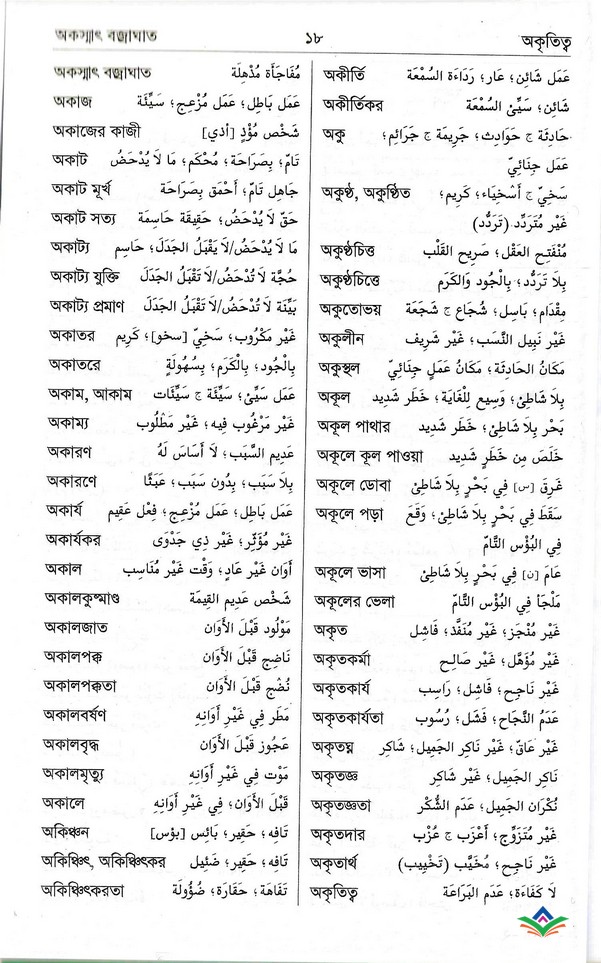 অকস্মাৎ বজ্রাঘাত ১৮ অকৃতিত্ব
অকস্মাৎ বজ্রাঘাত مُفَاجَأَة مُذْهِلَة
অকাজ عَمَل بَاطِل؛ عَمَل مُزْعِج؛ سَيِّئَة
অকাজের কাজী شَخْص مُؤْذٍ [أذي]
অকাট تَامّ؛ بِصَرَاحَة؛ مُحْكَم؛ مَا لَا يُدْحَضُ
অকাট মূর্খ جَاهِل تَامّ؛ أَحْمَق بِصَرَاحَة
অকাট সত্য حَقّ لَا يُدْحَضُ؛ حَقِيقَة حَاسِمَة
অকাট্য مَا لَا يُدْحَضُ/لَا يَقْبَلُ الجَدَلَ؛ حَاسِم
অকাট্য যুক্তি حُجَّة لَا تُدْحَضُ/لَا تَقْبَلُ الجَدَلَ
অকাট্য প্রমাণ بَيِّنَة لَا تُدْحَضُ/لَا تَقْبَلُ الجَدَلَ
অকাতর غَيْر مَكْرُوب؛ سَخِيّ [سخو]؛ كَرِيم
অকাতরে بِالْجُود؛ بِالْكَرَم؛ بِسُهُولَةٍ
অকাম, আকাম عَمَل سَيِّئ؛ سَيِّئَة ج سَيِّئَات
অকাম্য غَيْر مَرْغُوب فِيه؛ غَيْر مَطْلُوب
অকারণ عَدِيم السَّبَب؛ لَا أَسَاسَ لَهُ
অকারণে بِلَا سَبَب؛ بِدُون سَبَب؛ عَبَثًا
অকার্য عَمَل بَاطِل؛ عَمَل مُزْعِج؛ فِعْل عَقِيم
অকার্যকর غَيْر مُؤَثِّر؛ غَيْر ذِي جَدْوَى
অকাল أَوَان غَيْر عَادٍ؛ وَقْت غَيْر مُنَاسِب
অকালকুষ্মাণ্ড شَخْص عَدِيم القِيمَة
অকালজাত مَوْلُود قَبْلَ الأَوَان
অকালপক্ক نَاضِج قَبْلَ الأَوَان
অকালপক্কতা نُضْج قَبْلَ الأَوَان
অকালবর্ষণ مَطَر فِي غَيْرِ أَوَانِهِ
অকালবৃদ্ধ عَجُوز قَبْلَ الأَوَان
অকালমৃত্যু مَوْت فِي غَيْرِ أَوَانِهِ
অকালে قَبْلَ الأَوَان؛ فِي غَيْرِ أَوَانِهِ
অকিঞ্চন تَافِه؛ حَقِير؛ بَائِس [بؤس]
অকিঞ্চিৎ, অকিঞ্চিৎকর تَافِه؛ حَقِير؛ ضَئِيل
অকিঞ্চিৎকরতা تَفَاهَة؛ حَقَارَة؛ ضُؤُولَة
অকীর্তি عَمَل شَائِن؛ عَار؛ رَدَاءَة السُّمْعَة
অকীর্তিকর شَائِن؛ سَيِّئ السُّمْعَة
অকু حَادِثَة ج حَوَادِث؛ جَرِيمَة ج جَرَائِم؛
عَمَل جِنَائِيّ
অকুণ্ঠ, অকুণ্ঠিত سَخِيّ ج أَسْخِيَاء؛ كَرِيم؛
غَيْر مُتَرَدِّد (تَرَدُّد)
অকুণ্ঠচিত্ত مُنْفَتِح العَقْل؛ صَرِيح القَلْب
অকুণ্ঠচিত্তে بِلَا تَرَدُّد؛ بِالْجُود وَالكَرَم
অকুতোভয় مِقْدَام؛ بَاسِل؛ شُجَاع ج شَجَعَة
অকুলীন غَيْر نَبِيل النَّسَب؛ غَيْر شَرِيف
অকুস্থল مَكَانُ الحَادِثَة؛ مَكَانُ عَمَلٍ جِنَائِيّ
অকূল بِلَا شَاطِئ؛ وَسِيع لِلْغَايَة؛ خَطَر شَدِيد
অকূল পাথার بَحْر بِلَا شَاطِئ؛ خَطَر شَدِيد
অকূলে কূল পাওয়া خَلَصَ مِن خَطَرٍ شَدِيد
অকূলে ডোবা غَرِقَ [س] فِي بَحْرٍ بِلَا شَاطِئ
অকূলে পড়া سَقَطَ فِي بَحْرٍ بِلَا شَاطِئ؛ وَقَعَ
فِي البُؤْس التَّامّ
অকূলে ভাসা عَامَ [ن] فِي بَحْرٍ بِلَا شَاطِئ
অকূলের ভেলা مَلْجَأ فِي البُؤْس التَّامّ
অকৃত غَيْر مُنْجَز؛ غَيْر مُنَفَّذ؛ فَاشِل
অকৃতকর্মা غَيْر مُؤَهَّل؛ غَيْر صَالِح
অকৃতকার্য غَيْر نَاجِح؛ فَاشِل؛ رَاسِب
অকৃতকার্যতা عَدَمُ النَّجَاح؛ فَشَل؛ رُسُوب
অকৃতঘ্ন غَيْر عَاقّ؛ غَيْر نَاكِر الجَمِيل؛ شَاكِر
অকৃতজ্ঞ نَاكِر الجَمِيل؛ غَيْر شَاكِر
অকৃতজ্ঞতা نُكْرَان الجَمِيل؛ عَدَم الشُّكْر
অকৃতদার غَيْر مُتَزَوِّج؛ أَعْزَب ج عُزْب
অকৃতার্থ غَيْر نَاجِح؛ مُخَيَّب (تَخْيِيب)
অকৃতিত্ব لَا كَفَاءَة؛ عَدَم البَرَاعَة